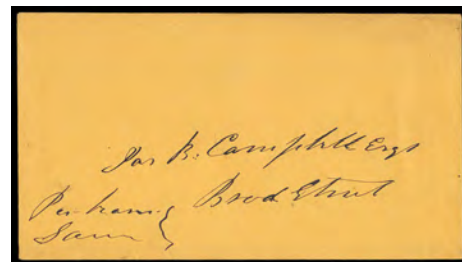 Jas B. Campbell Esqr
Brod Street
Per
Sam